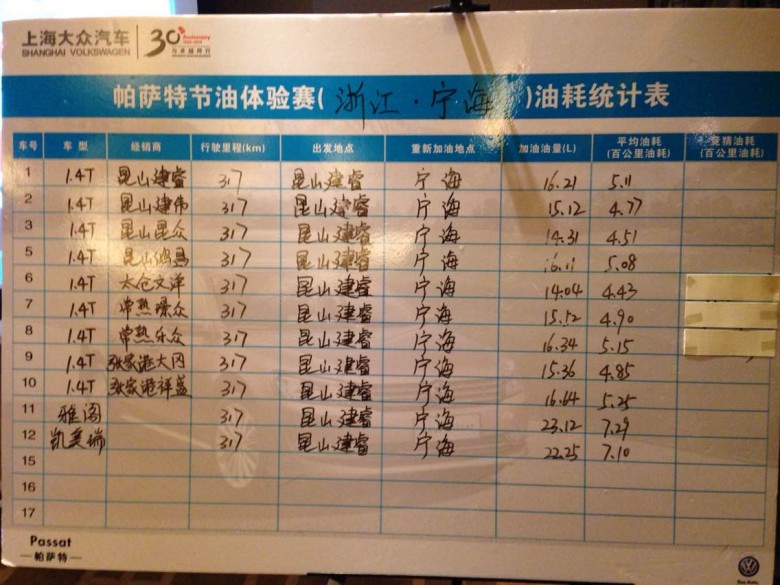 上海大众汽车 30 Anniversary
SHANGHAI VOLKSWAGEN 与卓越同行
帕萨特节油体验赛(浙江·宁海)油耗统计表
车号 车型 经销商 行驶里程(km) 出发地点 重新加油地点 加油油量(L) 平均油耗(百公里油耗) 竞猜油耗(百公里油耗)
1 1.4T 昆山建睿 317 昆山建睿 宁海 16.21 5.11
2 1.4T 昆山建伟 317 昆山建睿 宁海 15.12 4.77
3 1.4T 昆山昆众 317 昆山建睿 宁海 14.31 4.51
5 1.4T 昆山 317 昆山建睿 宁海 16.11 5.08
6 1.4T 太仓文洋 317 昆山建睿 宁海 14.04 4.43
7 1.4T 常熟 众 317 昆山建睿 宁海 15.52 4.90
8 1.4T 常熟乐众 317 昆山建睿 宁海 16.34 5.15
9 1.4T 张家港大 317 昆山建睿 宁海 15.36 4.85
10 1.4T 张家港祥 317 昆山建睿 宁海 16.64 5.25
11 雅阁 317 昆山建睿 宁海 23.12 7.29
12 凯美瑞 317 昆山建睿 宁海 22.25 7.10
15
16
17
Passat
帕萨特
Das Auto